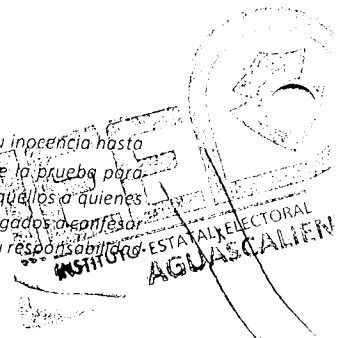 u inocencia hasta
e la prueba para
quéllos a quienes
gados a confesar
responsabilidad
INSTITUTO ESTATAL ELECTORAL
AGUASCALIEN